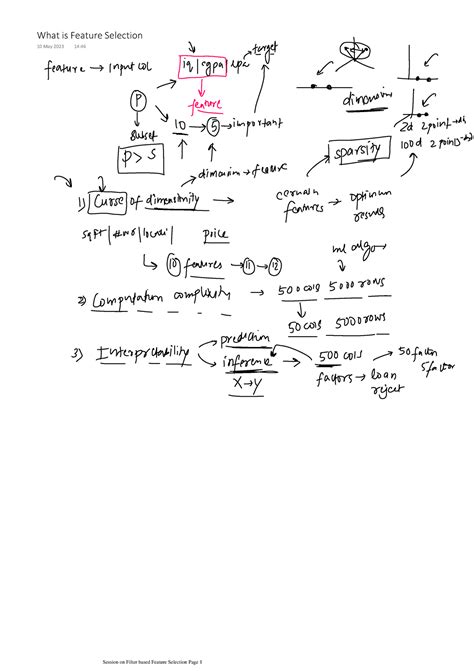 What is Feature Selection
10 May 2023 14:46
feature → Input col
iq | cgpa | lpa
target
feature
P
Subset
P > S
10 → 5 → important
dimension
sparsity
2d 2 point
100d 2 points
dimension → feature
1) Curse of dimensionality →
certain features → optimum results
sqft | | | price
10 features → 11 → 12
ml algo
2) Computation complexity → 500 cols 5000 rows
50 cols 5000 rows
3) Interpretability
prediction
inference → 500 cols
X → Y
factors → loan reject
50 factors
5 factors
Session on Filter based Feature Selection Page 1